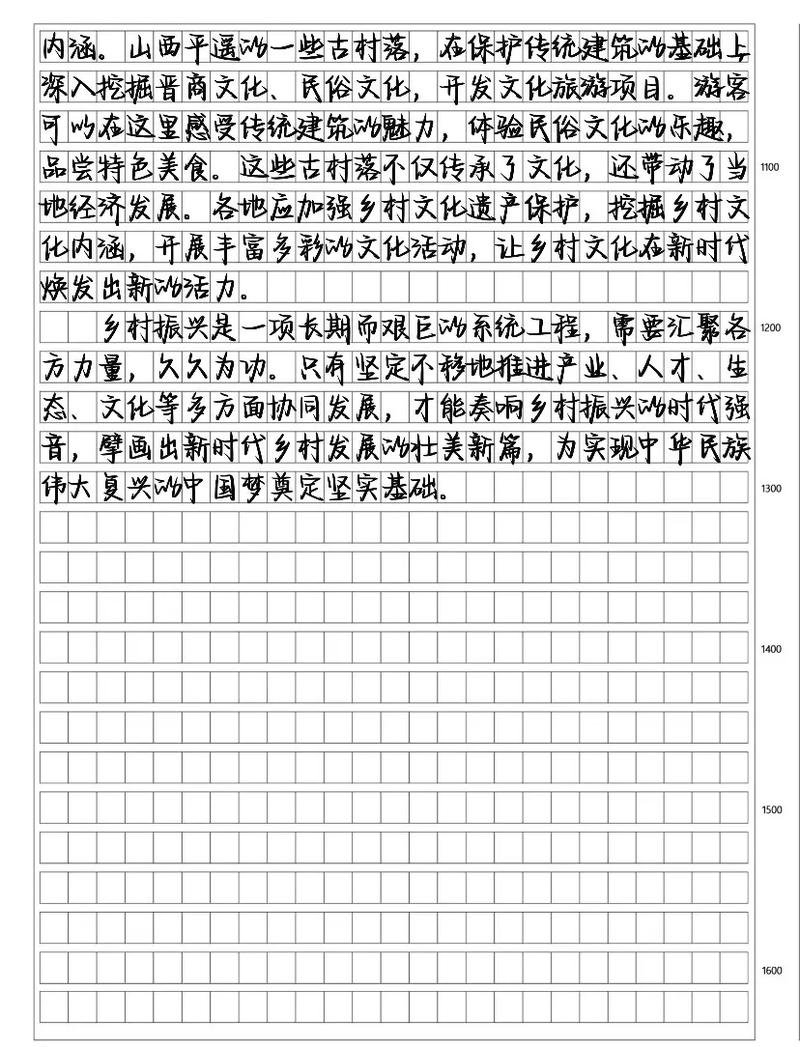 内涵。山西平遥的一些古村落，在保护传统建筑的基础上
深入挖掘晋商文化、民俗文化，开发文化旅游项目。游客
可以在这里感受传统建筑的魅力，体验民俗文化的乐趣，
品尝特色美食。这些古村落不仅传承了文化，还带动了当
1100
地经济发展。各地应加强乡村文化遗产保护，挖掘乡村文
化内涵，开展丰富多彩的文化活动，让乡村文化在新时代
焕发出新的活力。
乡村振兴是一项长期而艰巨的系统工程，需要汇聚各
1200
方力量，久久为功。只有坚定不移地推进产业、人才、生
态、文化等多方面协同发展，才能奏响乡村振兴的时代强
音，擘画出新时代乡村发展的壮美新篇，为实现中华民族
伟大复兴的中国梦奠定坚实基础。
1300
1400
1500
1600